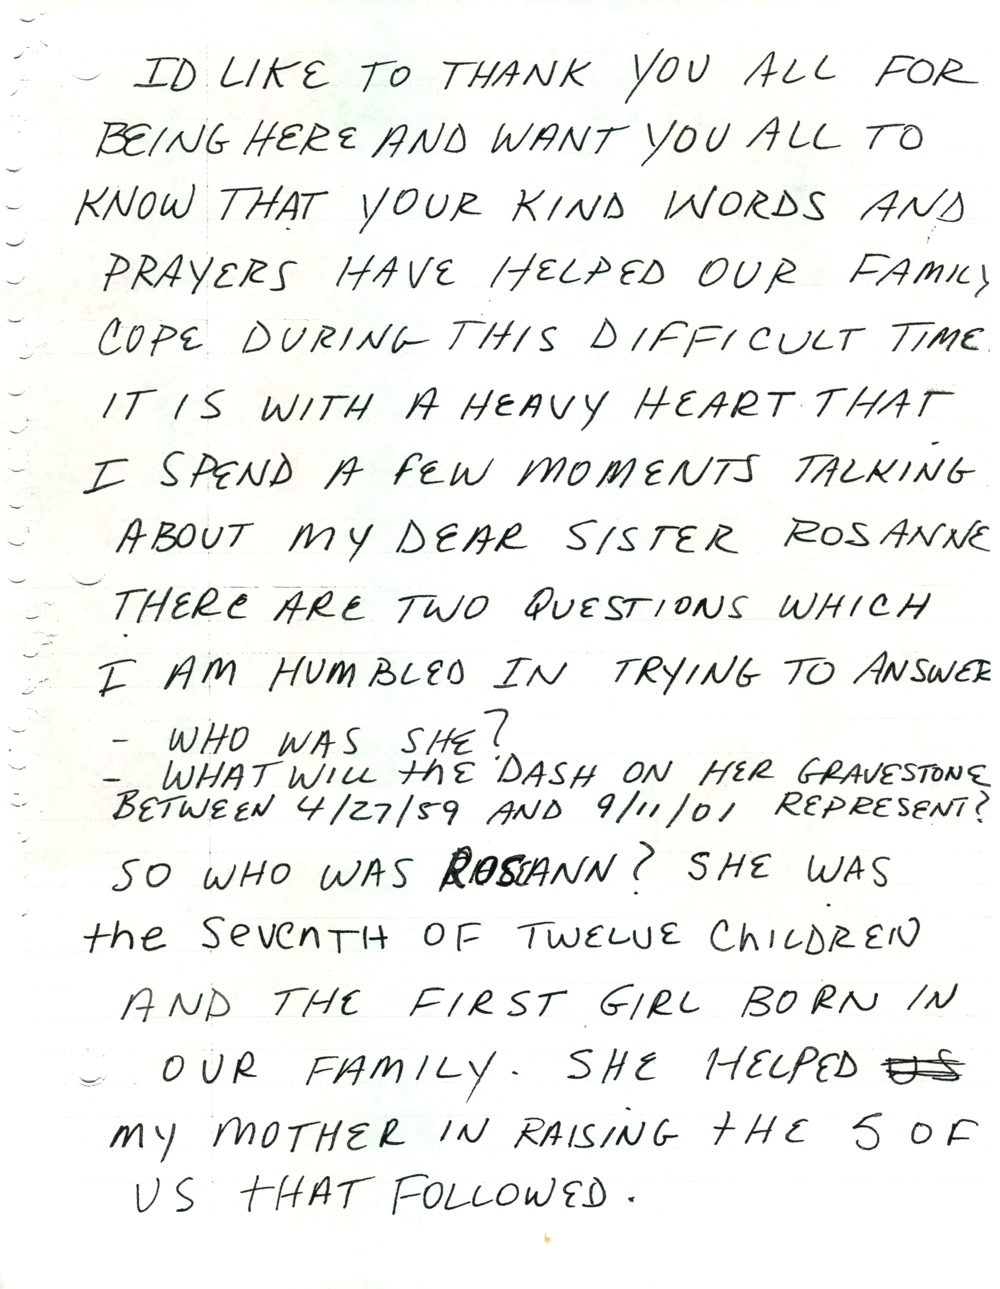 ID LIKE TO THANK YOU ALL FOR
BEING HERE AND WANT YOU ALL TO
KNOW THAT YOUR KIND WORDS AND
PRAYERS HAVE HELPED OUR FAMILY
COPE DURING THIS DIFFICULT TIME.
IT IS WITH A HEAVY HEART THAT
I SPEND A FEW MOMENTS TALKING
ABOUT MY DEAR SISTER ROSANNE
THERE ARE TWO QUESTIONS WHICH
I AM HUMBLED IN TRYING TO ANSWER
- WHO WAS SHE?
- WHAT WILL the DASH ON HER GRAVESTONE
BETWEEN 4/27/59 AND 9/11/01 REPRESENT?
SO WHO WAS ROSEANN? SHE WAS
the SeVenTH OF TWELVE ChILDREN
AND THE FIRST GIRL BORN IN
OUR FAMILY. SHE HELPED US
MY MOTHER IN RAISING tHE 5 OF
US tHAT FOLLOWED.